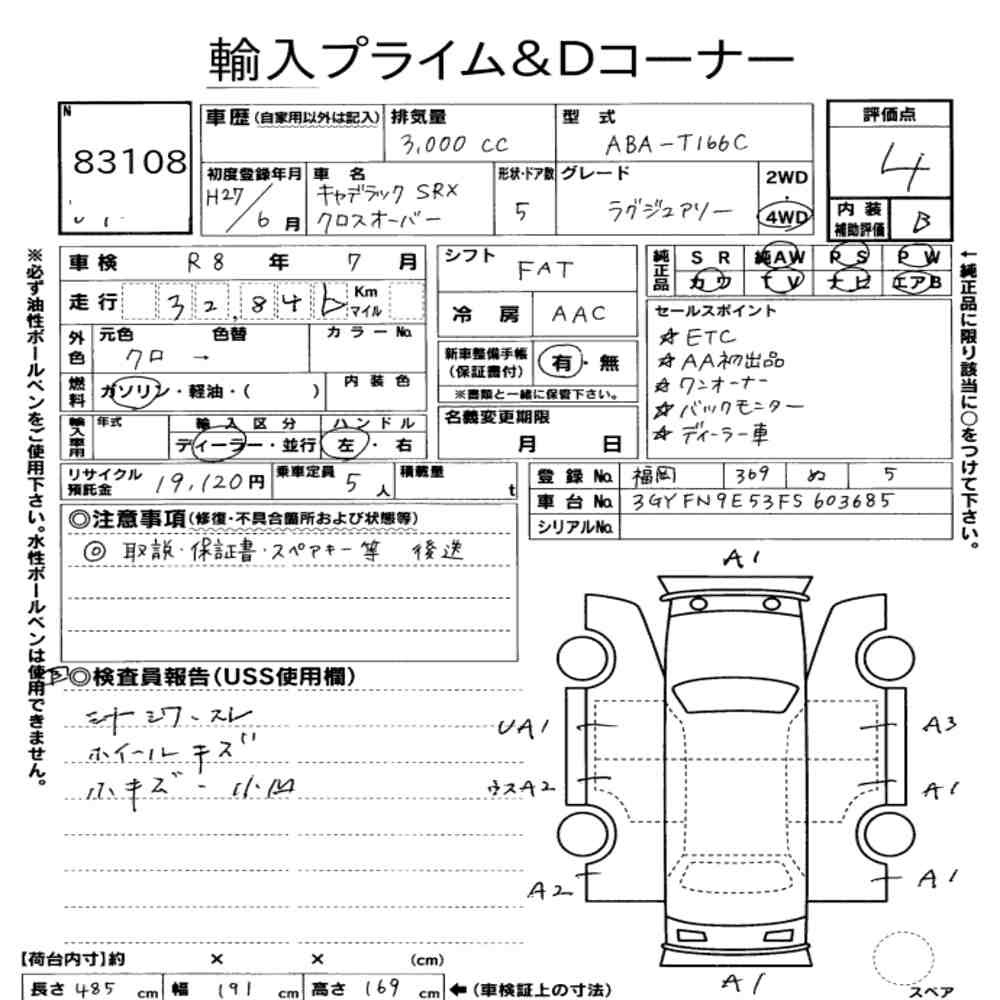 輸入プライム&Dコーナー
N
83108
車歴(自家用以外は記入)
排気量
3,000 CC
型式
ABA-T166C
評価点
4
初度登録年月
H27/6月
車名
キャデラック SRX
クロスオーバー
形状・ドア数
5
グレード
ラグジュアリー
2WD
・
4WD
内装
補助評価
B
※必ず油性ボールペンをご使用下さい。水性ボールペンは使用できません。
車検 R8 年 7 月
走行 32,84 Km
マイル
外色
元色
クロ →
色替
カラーNo.
燃料
ガソリン・軽油・( )
内装色
輸入車用
年式
輸入区分
ディーラー・並行
ハンドル
左・右
リサイクル
預託金
19,120円
乗車定員
5人
積載量
t
シフト
FAT
冷房
AAC
新車整備手帳
(保証書付)
有・無
※書類と一緒に保管下さい。
名義変更期限
月 日
純正品
SR 純AW PS PW
カワ TV ナビ エアB
セールスポイント
☆ETC
☆AA初出品
☆ワンオーナー
☆バックモニター
☆ディーラー車
←純正品に限り該当に○をつけて下さい。
登録No. 福岡 369 ぬ 5
車台No. 3GYFN9E53FS603685
シリアルNo.
◎注意事項(修復・不具合箇所および状態等)
◎ 取説・保証書・スペアキー等 後送
◎検査員報告(USS使用欄)
シート シワ・スレ
ホイールキズ
小キズ・小凹
A1
UA1
A3
ウスA2
A1
A2
A1
A1
スペア
【荷台内寸】約 × × (cm)
長さ 485 cm 幅 191 cm 高さ 169 cm ←(車検証上の寸法)